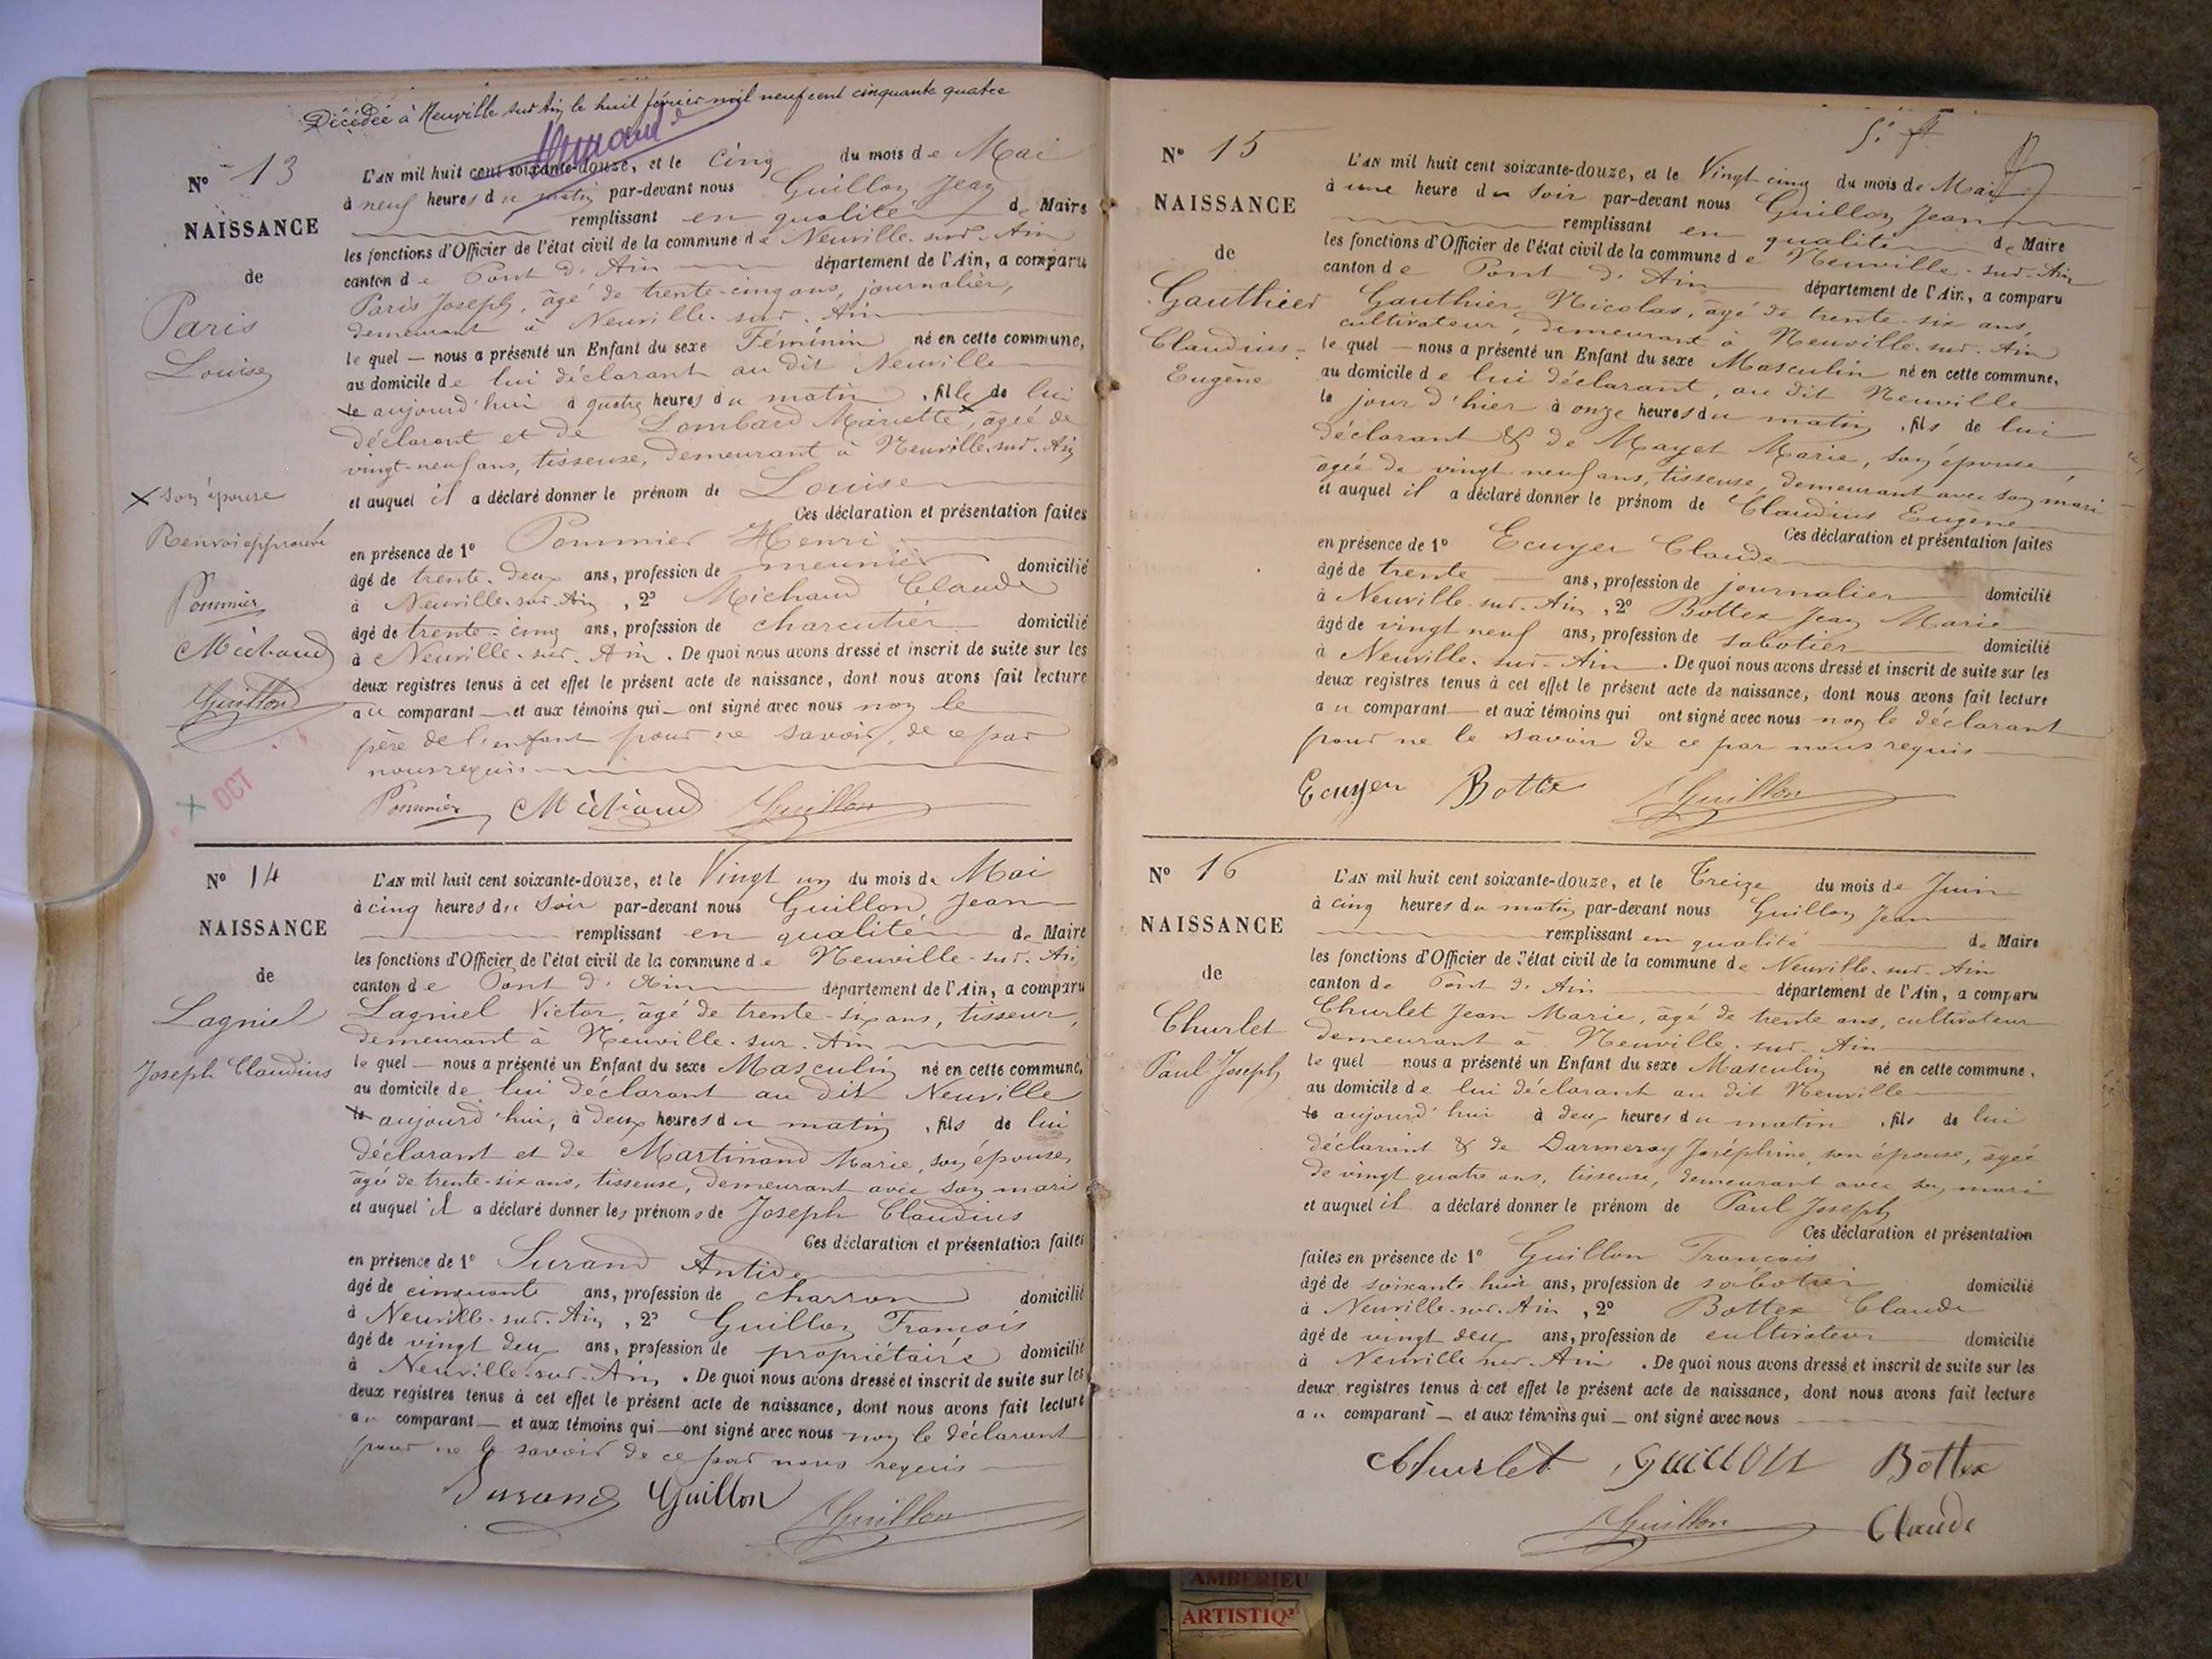 Décédée à Neuville sur Ain le huit février mil neuf cent cinquante quatre
N° 13
NAISSANCE
de
Paris
Louise
L'AN mil huit cent soixante-douze, et le cinq du mois de Mai
à neuf heures du matin par-devant nous Guillon Jean
remplissant en qualité de Maire
les fonctions d'Officier de l'état civil de la commune de Neuville-sur-Ain
canton de Pont d'Ain département de l'Ain, a comparu
Paris Joseph, âgé de trente-cinq ans, journalier,
demeurant à Neuville-sur-Ain
lequel nous a présenté un Enfant du sexe Féminin né en cette commune,
au domicile de lui déclarant au dit Neuville
le aujourd'hui à quatre heures du matin, fille de lui
déclarant et de Lombard Mariette ×, âgée de
vingt-neuf ans, tisseuse, demeurant à Neuville-sur-Ain
et auquel il a déclaré donner le prénom de Louise
Ces déclaration et présentation faites
en présence de 1° Pommier Henri
âgé de trente-deux ans, profession de meunier domicilié
à Neuville-sur-Ain, 2° Michaud Claude
âgé de trente-cinq ans, profession de charcutier domicilié
à Neuville-sur-Ain. De quoi nous avons dressé et inscrit de suite sur les
deux registres tenus à cet effet le présent acte de naissance, dont nous avons fait lecture
au comparant et aux témoins qui ont signé avec nous non le
père de l'enfant pour ne savoir, de ce par
nous requis
× son épouse
Renvoi approuvé
Pommier
Michaud
Guillon
OCT
Pommier Michaud Guillon
N° 14
NAISSANCE
de
Lagniel
Joseph Claudius
L'AN mil huit cent soixante-douze, et le Vingt un du mois de Mai
à cinq heures du soir par-devant nous Guillon Jean
remplissant en qualité de Maire
les fonctions d'Officier de l'état civil de la commune de Neuville-sur-Ain
canton de Pont d'Ain département de l'Ain, a comparu
Lagniel Victor, âgé de trente-six ans, tisseur,
demeurant à Neuville-sur-Ain
lequel nous a présenté un Enfant du sexe Masculin né en cette commune,
au domicile de lui déclarant au dit Neuville
le aujourd'hui, à deux heures du matin, fils de lui
déclarant et de Martinand Marie, son épouse,
âgée de trente-six ans, tisseuse, demeurant avec son mari
et auquel il a déclaré donner les prénoms de Joseph Claudius
Ces déclaration et présentation faites
en présence de 1° Durand Antide
âgé de cinquante ans, profession de charron domicilié
à Neuville-sur-Ain, 2° Guillon François
âgé de vingt deux ans, profession de propriétaire domicilié
à Neuville-sur-Ain. De quoi nous avons dressé et inscrit de suite sur les
deux registres tenus à cet effet le présent acte de naissance, dont nous avons fait lecture
au comparant et aux témoins qui ont signé avec nous non le déclarant
pour ne le savoir de ce par nous requis
Durand Guillon
Guillon
N° 15
NAISSANCE
de
Gauthier
Claudius-
Eugène
L'AN mil huit cent soixante-douze, et le Vingt cinq du mois de Mai
à une heure du soir par-devant nous Guillon Jean
remplissant en qualité de Maire
les fonctions d'Officier de l'état civil de la commune de Neuville-sur-Ain
canton de Pont d'Ain département de l'Ain, a comparu
Gauthier Nicolas, âgé de trente-six ans,
cultivateur, demeurant à Neuville-sur-Ain
lequel nous a présenté un Enfant du sexe Masculin né en cette commune,
au domicile de lui déclarant, au dit Neuville
le jour d'hier à onze heures du matin, fils de lui
déclarant & de Mayet Marie, son épouse
âgée de vingt neuf ans, tisseuse, demeurant avec son mari
et auquel il a déclaré donner le prénom de Claudius Eugène
Ces déclaration et présentation faites
en présence de 1° Ecuyer Claude
âgé de trente ans, profession de journalier domicilié
à Neuville-sur-Ain, 2° Bottex Jean Marie
âgé de vingt neuf ans, profession de sabotier domicilié
à Neuville-sur-Ain. De quoi nous avons dressé et inscrit de suite sur les
deux registres tenus à cet effet le présent acte de naissance, dont nous avons fait lecture
au comparant et aux témoins qui ont signé avec nous non le déclarant
pour ne le savoir de ce par nous requis
Ecuyer Bottex Guillon
N° 16
NAISSANCE
de
Churlet
Paul Joseph
L'AN mil huit cent soixante-douze, et le Treize du mois de Juin
à cinq heures du matin par-devant nous Guillon Jean
remplissant en qualité de Maire
les fonctions d'Officier de l'état civil de la commune de Neuville-sur-Ain
canton de Pont d'Ain département de l'Ain, a comparu
Churlet Jean Marie, âgé de trente ans, cultivateur
demeurant à Neuville-sur-Ain
lequel nous a présenté un Enfant du sexe Masculin né en cette commune,
au domicile de lui déclarant au dit Neuville
le aujourd'hui à deux heures du matin, fils de lui
déclarant & de Darmeray Joséphine, son épouse, âgée
de vingt quatre ans, tisseuse, demeurant avec son mari
et auquel il a déclaré donner le prénom de Paul Joseph
Ces déclaration et présentation
faites en présence de 1° Guillon François
âgé de soixante huit ans, profession de sabotier domicilié
à Neuville-sur-Ain, 2° Bottex Claude
âgé de vingt deux ans, profession de cultivateur domicilié
à Neuville sur-Ain. De quoi nous avons dressé et inscrit de suite sur les
deux registres tenus à cet effet le présent acte de naissance, dont nous avons fait lecture
au comparant et aux témoins qui ont signé avec nous
Churlet Guillon Bottex
Guillon Claude
AMBERIEU
ARTISTIQ